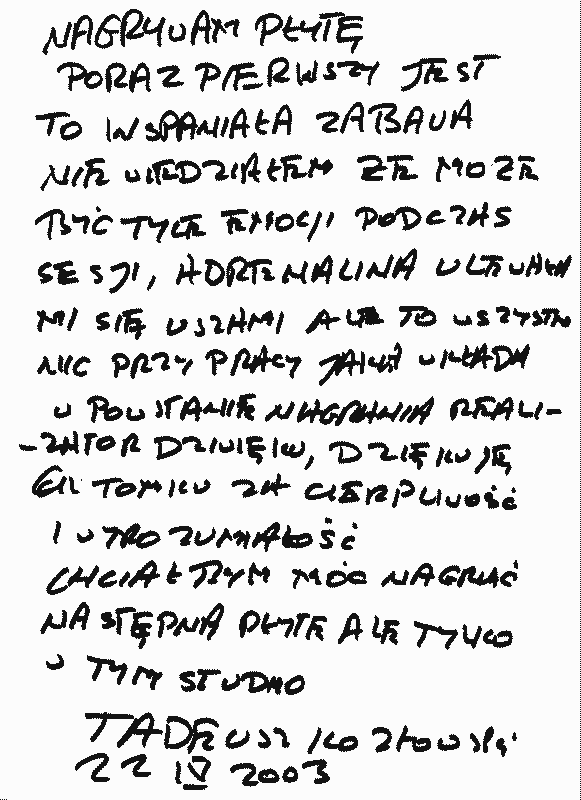 NAGRYWAM PŁYTĘ
PORAZ PIERWSZY JEST
TO WSPANIAŁA ZABAWA
NIE WIEDZIAŁEM ŻE MOŻE
BYĆ TYLE EMOCJI PODCZAS
SESJI, HDRENALINA ULEWAŁA
MI SIĘ USZAMI ALE TO WSZYSTKO
NIC PRZY PRACY JAKĄ WKŁADA
W POWSTANIE NAGRANIA REALI-
-ZATOR DZWIĘKU, DZIĘKUJĘ
CI TOMKU ZA CIERPLIWOŚĆ
I WYROZUMIAŁOŚĆ
CHCIAŁBYM MÓC NAGRAĆ
NASTĘPNA PŁYTE ALE TYLKO
W TYM STUDIO
TADEUSZ KOZŁOWSKI
22 IV 2003